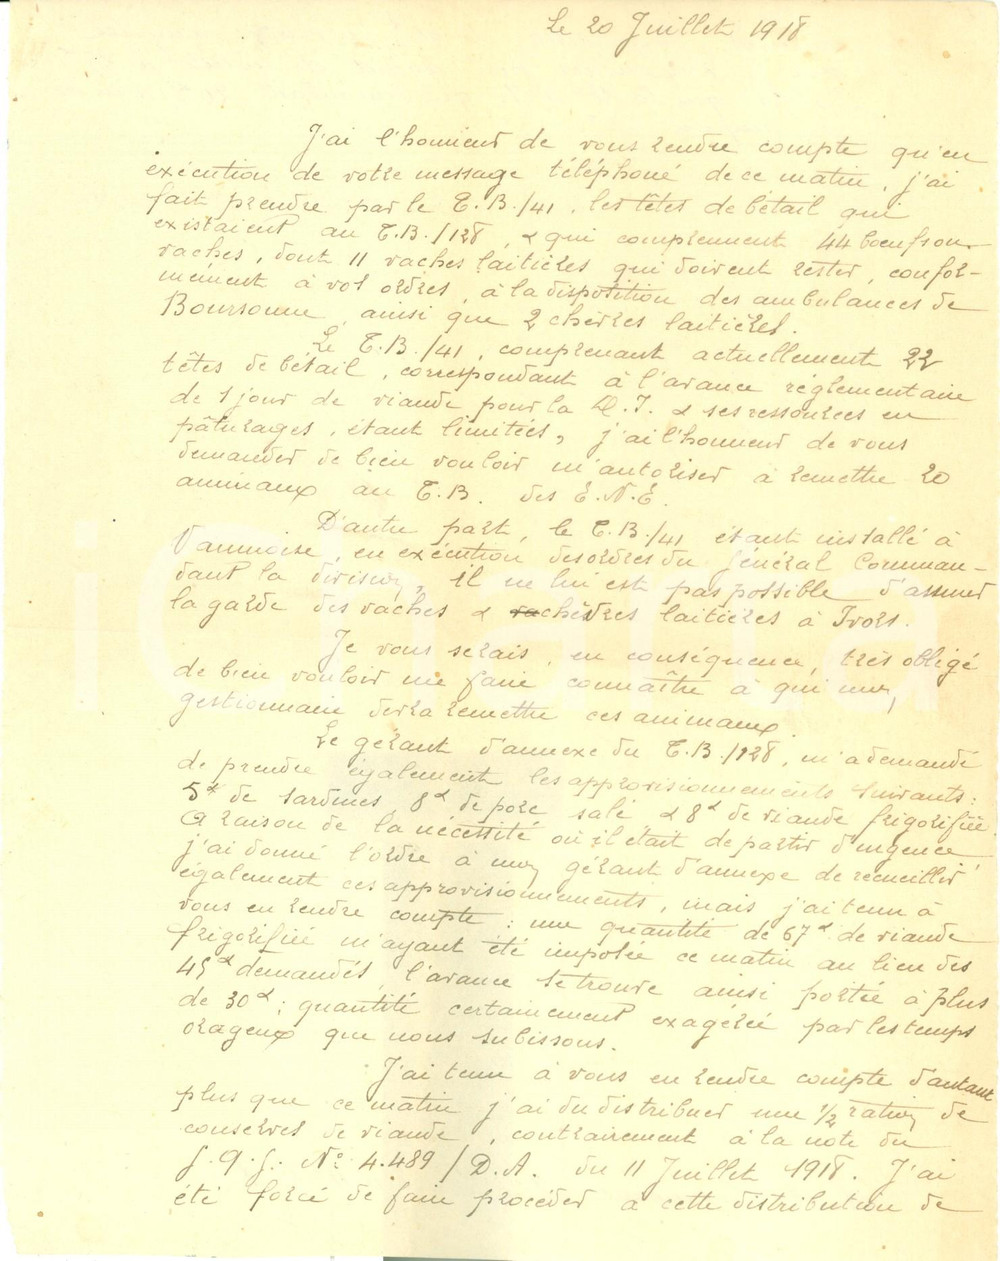 Le 20 Juillet 1918
J'ai l'honneur de vous rendre compte qu'en
exécution de votre message téléphoné de ce matin, j'ai
fait prendre par le T.B./41, les têtes de bétail qui
existaient au T.B./128, & qui comprennent 44 boeufs ou
vaches, dont 11 vaches laitières qui doivent rester, confor-
mement à vos ordres, à la disposition des ambulances de
Boursonne, ainsi que 2 chèvres laitières.
Le T.B./41, comprenant actuellement 22
têtes de bétail, correspondant à l'avance réglementaire
de 1 jour de viande pour la D.I. & ses ressources en
pâturages, étant limitées, j'ai l'honneur de vous
demander de bien vouloir m'autoriser à remettre 20
animaux au T.B. des E.N.E.
D'autre part, le T.B./41 étant installé à
Vaumoise, en exécution des ordres du Général Comman-
dant la division, il ne lui est pas possible d'assurer
la garde des vaches & chèvres laitières à Ivors.
Je vous serais, en conséquence, très obligé
de bien vouloir me faire connaître à qui mon
gestionnaire devra remettre ces animaux.
Le gérant d'annexe du T.B./128, m'a demandé
de prendre également les approvisionnements suivants:
5 de sardines, 8 de porc salé, & 8 de viande frigorifiée.
A raison de la nécessité où il était de partir d'urgence
j'ai donné l'ordre à mon gérant d'annexe de recueillir
également ces approvisionnements, mais j'ai tenu à
vous en rendre compte: une quantité de 67 de viande
frigorifiée m'ayant été imposée ce matin au lieu des
45 demandés, l'avance se trouve ainsi portée à plus
de 30; quantité certainement exagérée par les temps
orageux que nous subissons.
J'ai tenu à vous en rendre compte d'autant
plus que ce matin j'ai du distribuer une 1/2 ration de
conserves de viande, contrairement à la note du
G.Q.G. N° 4.489/D.A. du 11 Juillet 1918. J'ai
été forcé de faire procéder à cette distribution de